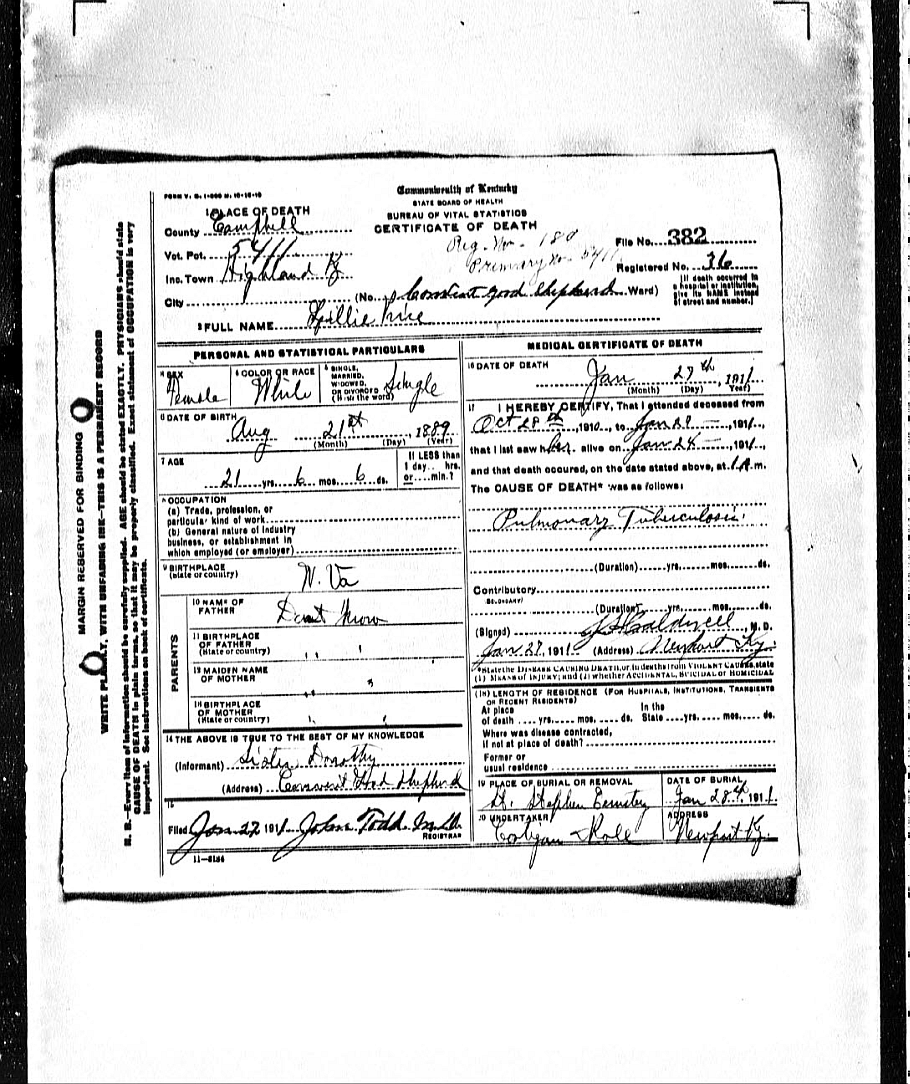 FORM V. S. 1-500 M. 10-15-10
Commonwealth of Kentucky
STATE BOARD OF HEALTH
BUREAU OF VITAL STATISTICS
CERTIFICATE OF DEATH
1 PLACE OF DEATH
County Campbell
Vot. Pct. 5411
Inc. Town Highland Ky
City
Reg. No. - 180
Primary No. 5411
File No. 382
Registered No. 36
(No. Convent good shepherd Ward)
(If death occurred in a hospital or institution, give its NAME instead of street and number.)
2 FULL NAME Lillie
PERSONAL AND STATISTICAL PARTICULARS
3 SEX Female
4 COLOR OR RACE White
5 SINGLE, MARRIED, WIDOWED, OR DIVORCED (Write the word) Single
6 DATE OF BIRTH Aug 21st 1889
(Month) (Day) (Year)
7 AGE 21 yrs. 6 mos. 6 ds.
If LESS than 1 day.. hrs. or....min.?
8 OCCUPATION
(a) Trade, profession, or particular kind of work
(b) General nature of industry business, or establishment in which employed (or employer)
9 BIRTHPLACE (State or country) W. Va
PARENTS
10 NAME OF FATHER Dont Know
11 BIRTHPLACE OF FATHER (State or country) " "
12 MAIDEN NAME OF MOTHER " "
13 BIRTHPLACE OF MOTHER (State or country) " "
14 THE ABOVE IS TRUE TO THE BEST OF MY KNOWLEDGE
(Informant) Sister Dorothy
(Address) Convent Good Shepherd
15
Filed Jan 27 1911 John Todd M.D. REGISTRAR
11-5184
MEDICAL CERTIFICATE OF DEATH
16 DATE OF DEATH Jan 27th, 1911
(Month) (Day) (Year)
17 I HEREBY CERTIFY, That I attended deceased from
Oct 28th, 1910, to Jan 27, 1911,
that I last saw her alive on Jan 24, 1911,
and that death occured, on the date stated above, at 1 A.m.
The CAUSE OF DEATH* was as follows:
Pulmonary Tuberculosis
(Duration) yrs. mos. ds.
Contributory
(SECONDARY)
(Duration) yrs. mos. ds.
(Signed) Caldwell, M. D.
Jan 27, 1911 (Address) Newport Ky.
*State the DISEASE CAUSING DEATH, or, in deaths from VIOLENT CAUSES, state
(1) MEANS OF INJURY; and (2) whether ACCIDENTAL, SUICIDAL or HOMICIDAL
(18) LENGTH OF RESIDENCE (FOR HOSPITALS, INSTITUTIONS, TRANSIENTS OR RECENT RESIDENTS)
At place of death .... yrs. .... mos. .... ds. In the State .... yrs. .... mos. .... ds.
Where was disease contracted, if not at place of death?
Former or usual residence
19 PLACE OF BURIAL OR REMOVAL
St. Stephen
DATE OF BURIAL
Jan 28th, 1911
20 UNDERTAKER
ADDRESS
Newport Ky.
MARGIN RESERVED FOR BINDING
WRITE PLAINLY, WITH UNFADING INK—THIS IS A PERMANENT RECORD
N. B.—Every item of information should be carefully supplied. AGE should be stated EXACTLY. PHYSICIANS should state
CAUSE OF DEATH in plain terms, so that it may be properly classified. Exact statement of OCCUPATION is very
important. See instructions on back of certificate.